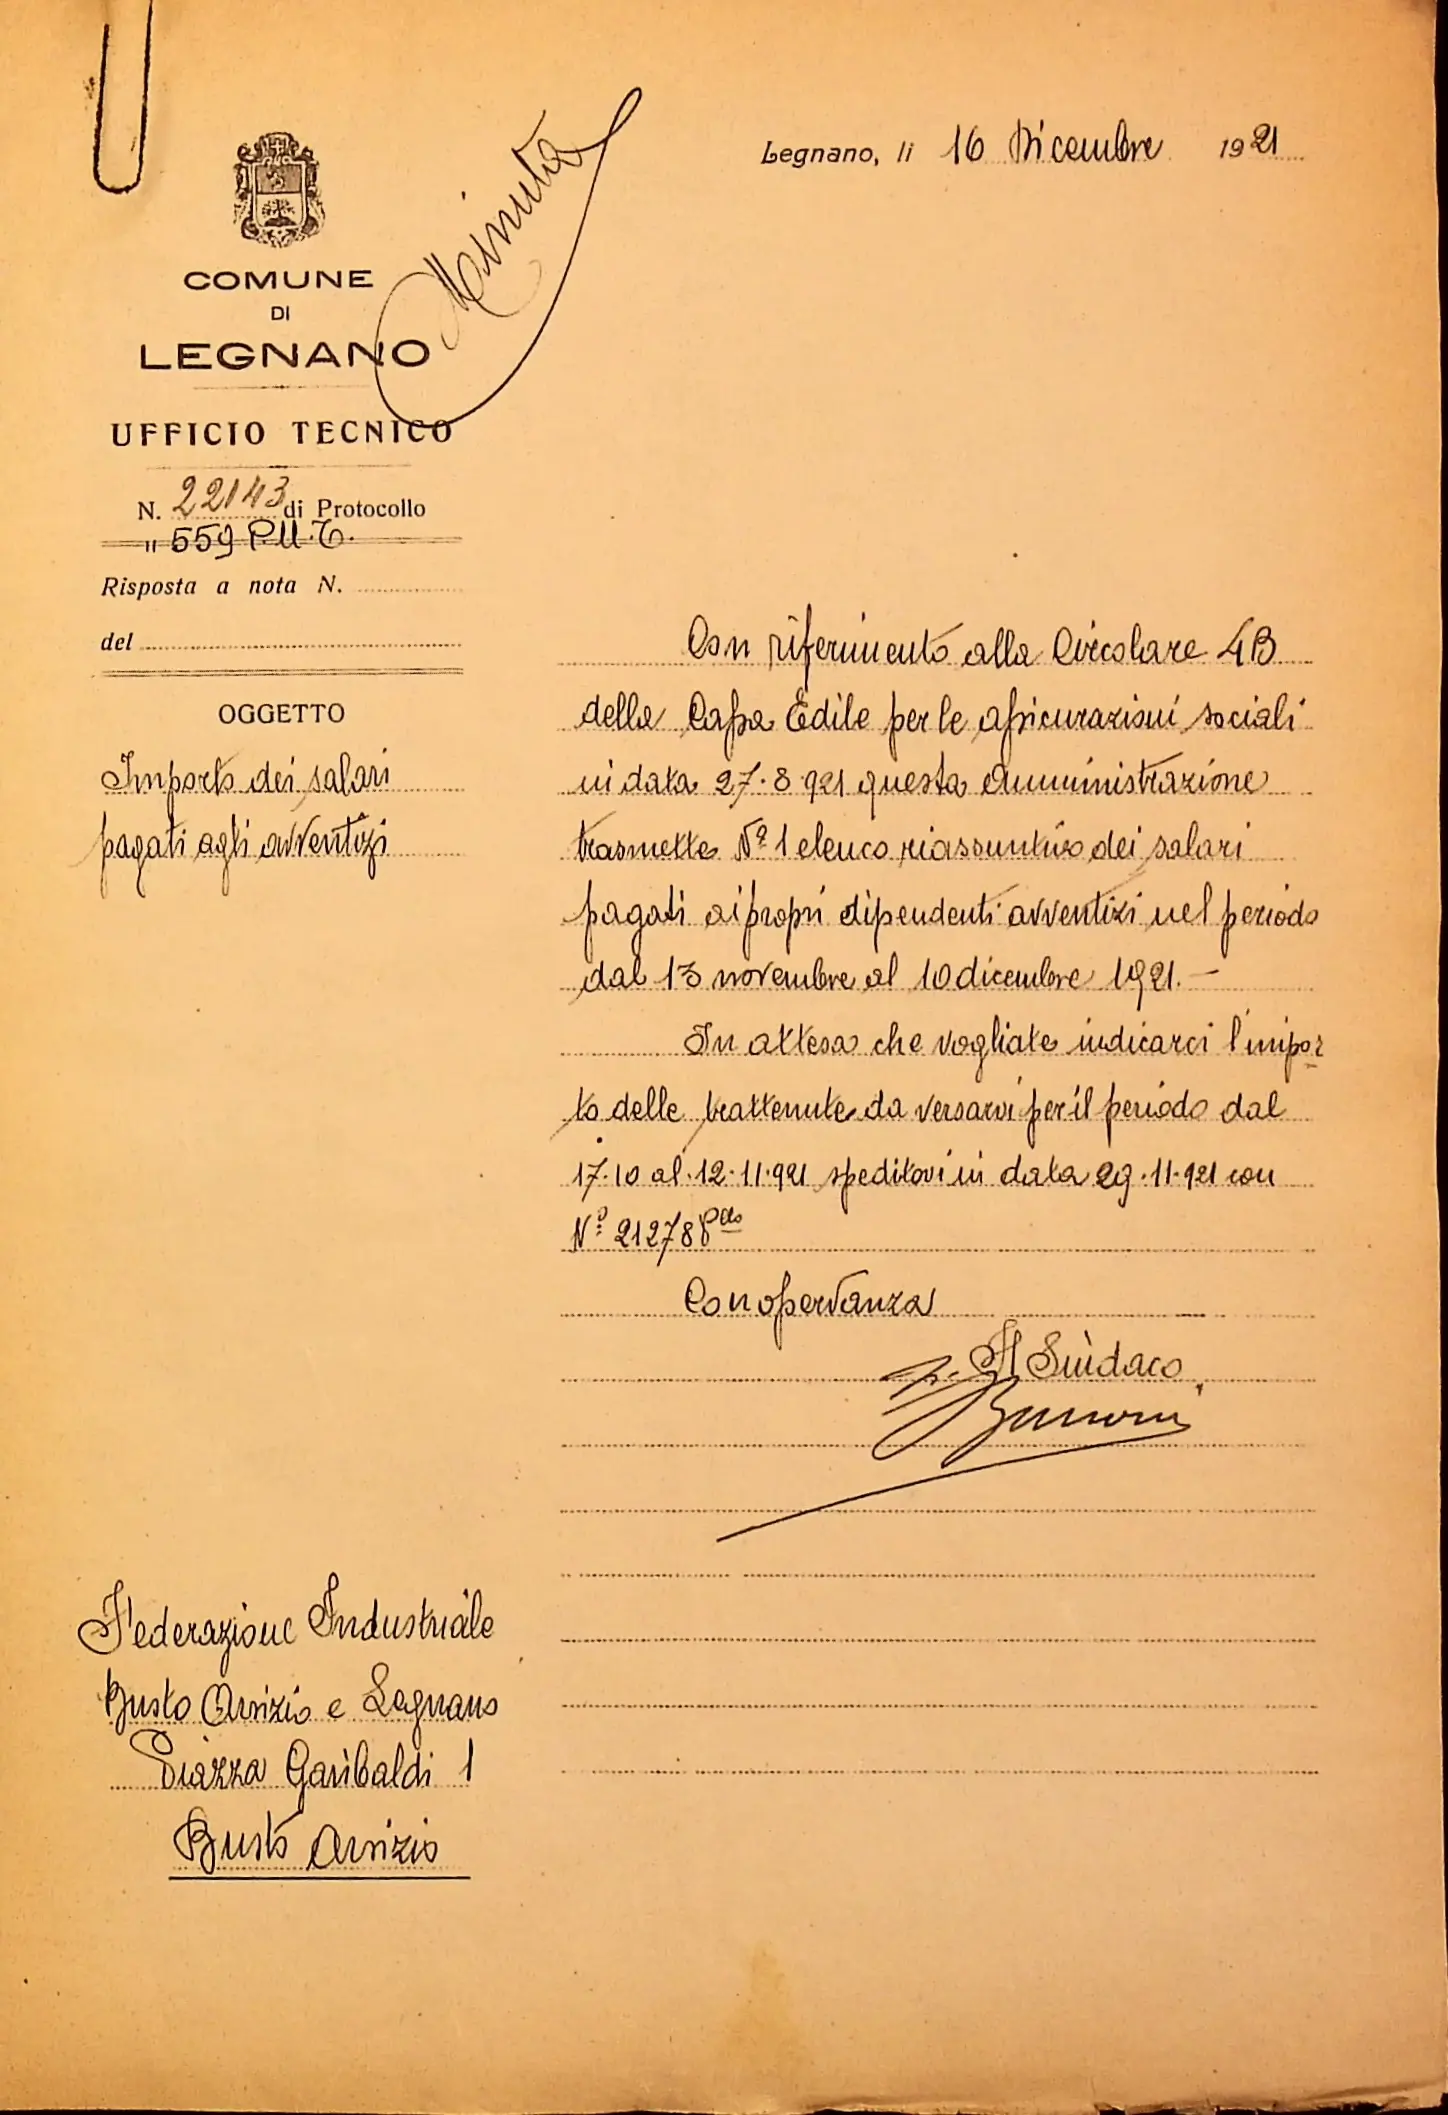 Minuta
Legnano, li 16 Dicembre 1921
COMUNE
DI
LEGNANO
UFFICIO TECNICO
N. 22143 di Protocollo
" 559 P.U.T.
Risposta a nota N.
del
OGGETTO
Importo dei salari
pagati agli avventizi
Con riferimento alla Circolare 4B
della Cassa Edile per le assicurazioni sociali
in data 27.8.921 questa Amministrazione
trasmette Nº 1 elenco riassuntivo dei salari
pagati ai propri dipendenti avventizi nel periodo
dal 13 novembre al 10 dicembre 1921.-
In attesa che vogliate indicarci l'impor
to delle trattenute da versarvi per il periodo dal
17.10 al 12.11.921 speditovi in data 29.11.921 con
Nº 21278 Pllo
Con osservanza
p. Il Sindaco
Federazione Industriale
Busto Arsizio e Legnano
Piazza Garibaldi 1
Busto Arsizio